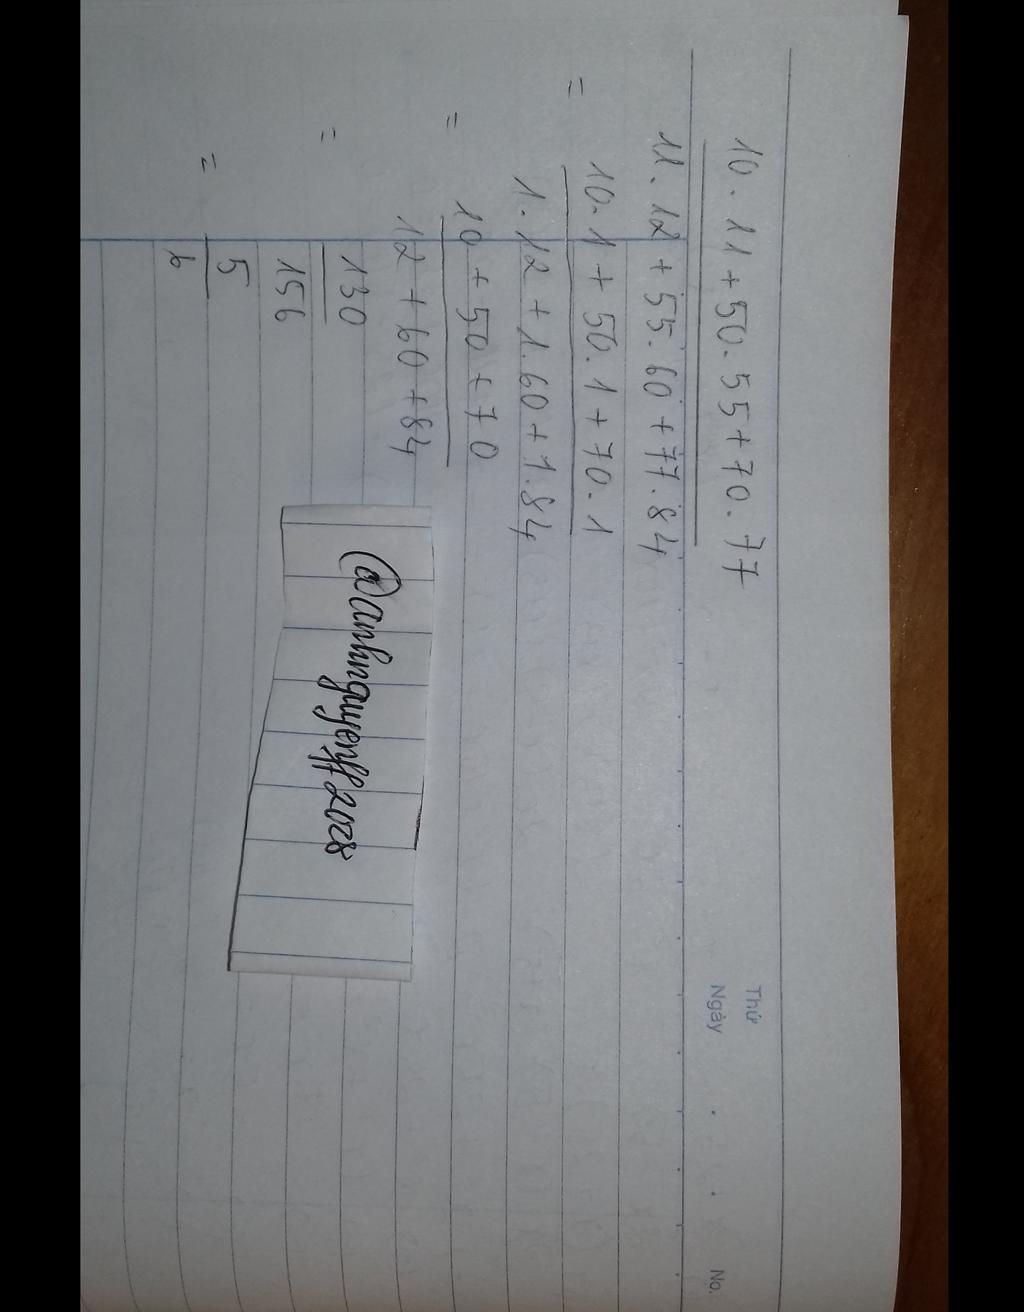 Thứ
Ngày . . No.
10. 11 + 50. 55 + 70. 77
11. 12 + 55. 60 + 77. 84
= 10. 1 + 50. 1 + 70. 1
1. 12 + 1. 60 + 1. 84
= 10 + 50 + 70
12 + 60 + 84
= 130
156
= 5
6
@anhnguyenff2028